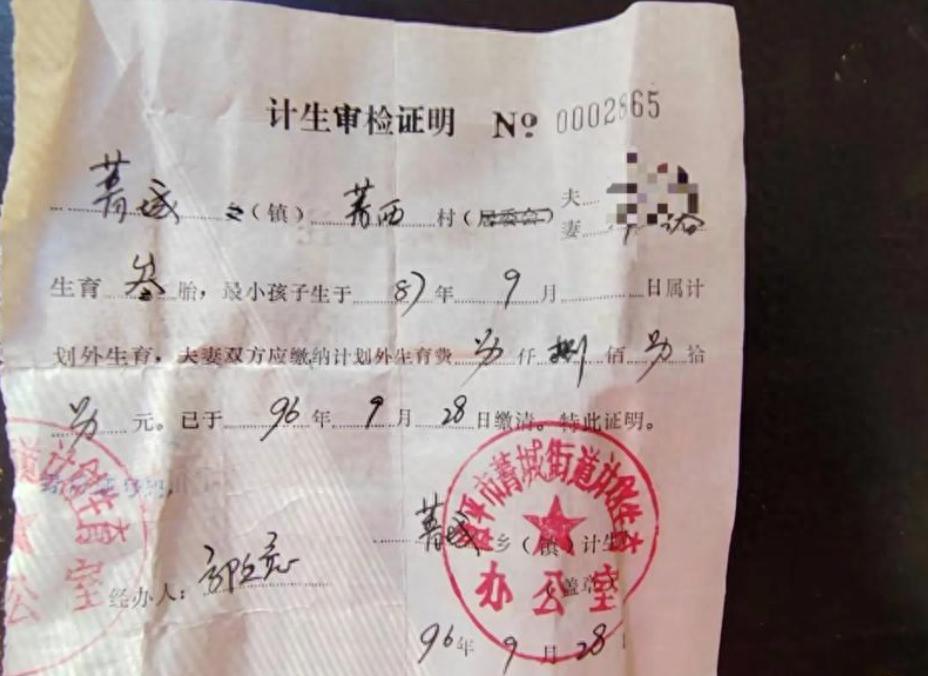 计生审检证明 № 0002865
菁城 乡（镇）菁西村（居委会）夫
妻
生育叁胎，最小孩子生于87年9月 日属计
划外生育，夫妻双方应缴纳计划外生育费 仟捌佰 拾
元。已于96年9月28日缴清。特此证明。
菁城乡（镇）计生
平市菁城街道计划生育
办公室
盖章
经办人：
96年9月28